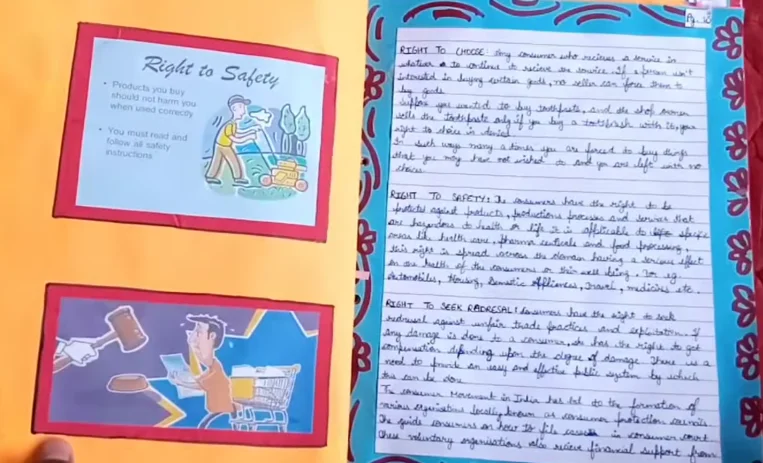 Right to Safety
• Products you buy
should not harm you
when used correctly
• You must read and
follow all safety
instructions
Pg. 18
RIGHT TO CHOOSE: Any consumer who recieves a service in
whatever to continue to recieve the service. If a person isn't
interested in buying certain goods, no seller can force them to
buy goods.
Suppose you wanted to buy toothpaste, and the shop owner
sells the toothpaste only if you buy a toothbrush with it, your
right to choice is denied.
In such ways many a times you are forced to buy things
that you may have not wished to and you are left with no
choice.
RIGHT TO SAFETY: The consumers have the right to be
protected against products, productions processes and services that
are hazardous to health or life it is applicable to specific
areas like health care, pharma ceuticals and food processing,
this right is spread across the domain having a serious effect
on the health of the consumers or their well being. For eg.
Automobiles, Housing, Domestic Appliances, Travel, medicines etc.
RIGHT TO SEEK RADRESAL: Consumers have the right to seek
redressal against unfair trade practices and exploitation. If
any damage is done to a consumer, she has the right to get
compensation depending upon the degree of damage. There is a
need to provide an easy and effective public system by which
this can be done.
The consumer Movement in India has led to the formation of
various organisations locally known as consumer protection councils
The guide consumers on how to file cases in consumer court
these voluntary organisations also recieve financial support from